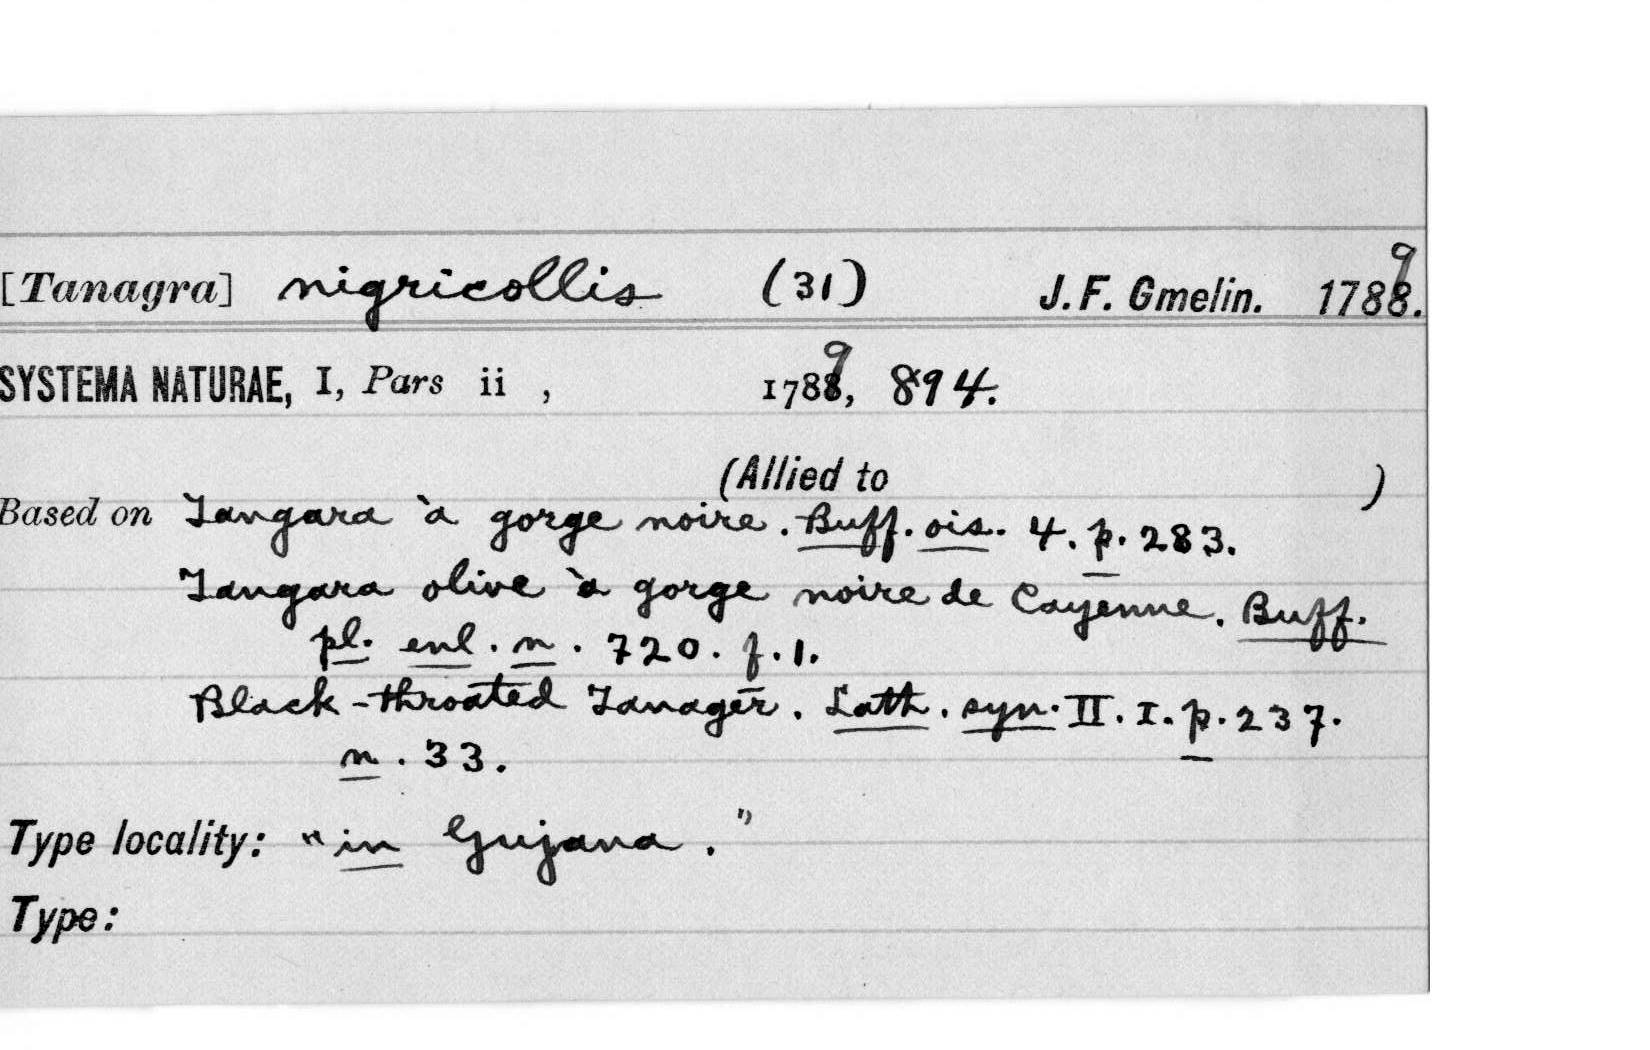 [Tanagra] nigricollis (31) J. F. Gmelin. 1789.
SYSTEMA NATURAE, I, Pars ii , 1789, 894.
(Allied to )
Based on Tangara à gorge noire. Buff. ois. 4. p. 283.
Tangara olive à gorge noire de Cayenne. Buff.
pl. enl. n. 720. f. 1.
Black-throated Tanager. Lath. syn. II. I. p. 237.
n. 33.
Type locality: "in Gujana."
Type: